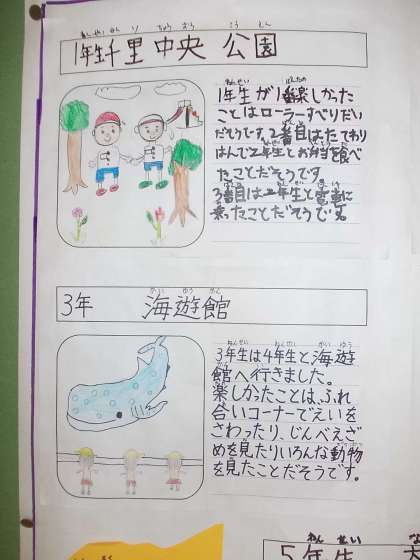 1年生千里中央公園
1年生が1番楽しかった
ことはローラーすべりだい
だそうです。2番目は、たてわり
はんで2年生とお弁当を食べ
たことだそうです。
3番目は2年生と電車に
乗ったことだそうです。
3年 海遊館
3年生は4年生と海遊
館へ行きました。
楽しかったことは、ふれ
合いコーナーでえいを
さわったり、じんべえざ
めを見たりいろんな動物
を見たことだそうです。
5年生